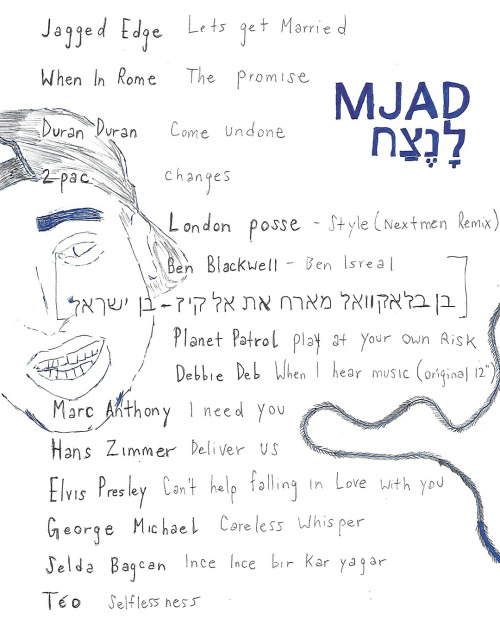 Jagged Edge Lets get Married
When In Rome The promise
MJAD
לָנֶצַח
Duran Duran Come undone
2-pac changes
London posse - Style (Nextmen Remix)
Ben Blackwell - Ben Isreal
בן בלאקוואל מארח את אל קיז - בן ישראל
Planet Patrol play at your own Risk
Debbie Deb When I hear music (original 12")
Marc Anthony I need you
Hans Zimmer Deliver us
Elvis Presley Can't help falling in Love with you
George Michael Careless Whisper
Selda Bagcan Ince Ince bir Kar yagar
Téo Selflessness